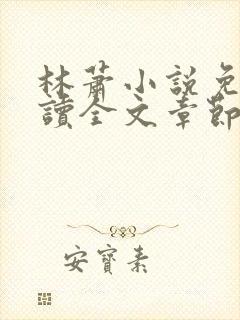 林蕭小說免
讀全文章節
安寶素